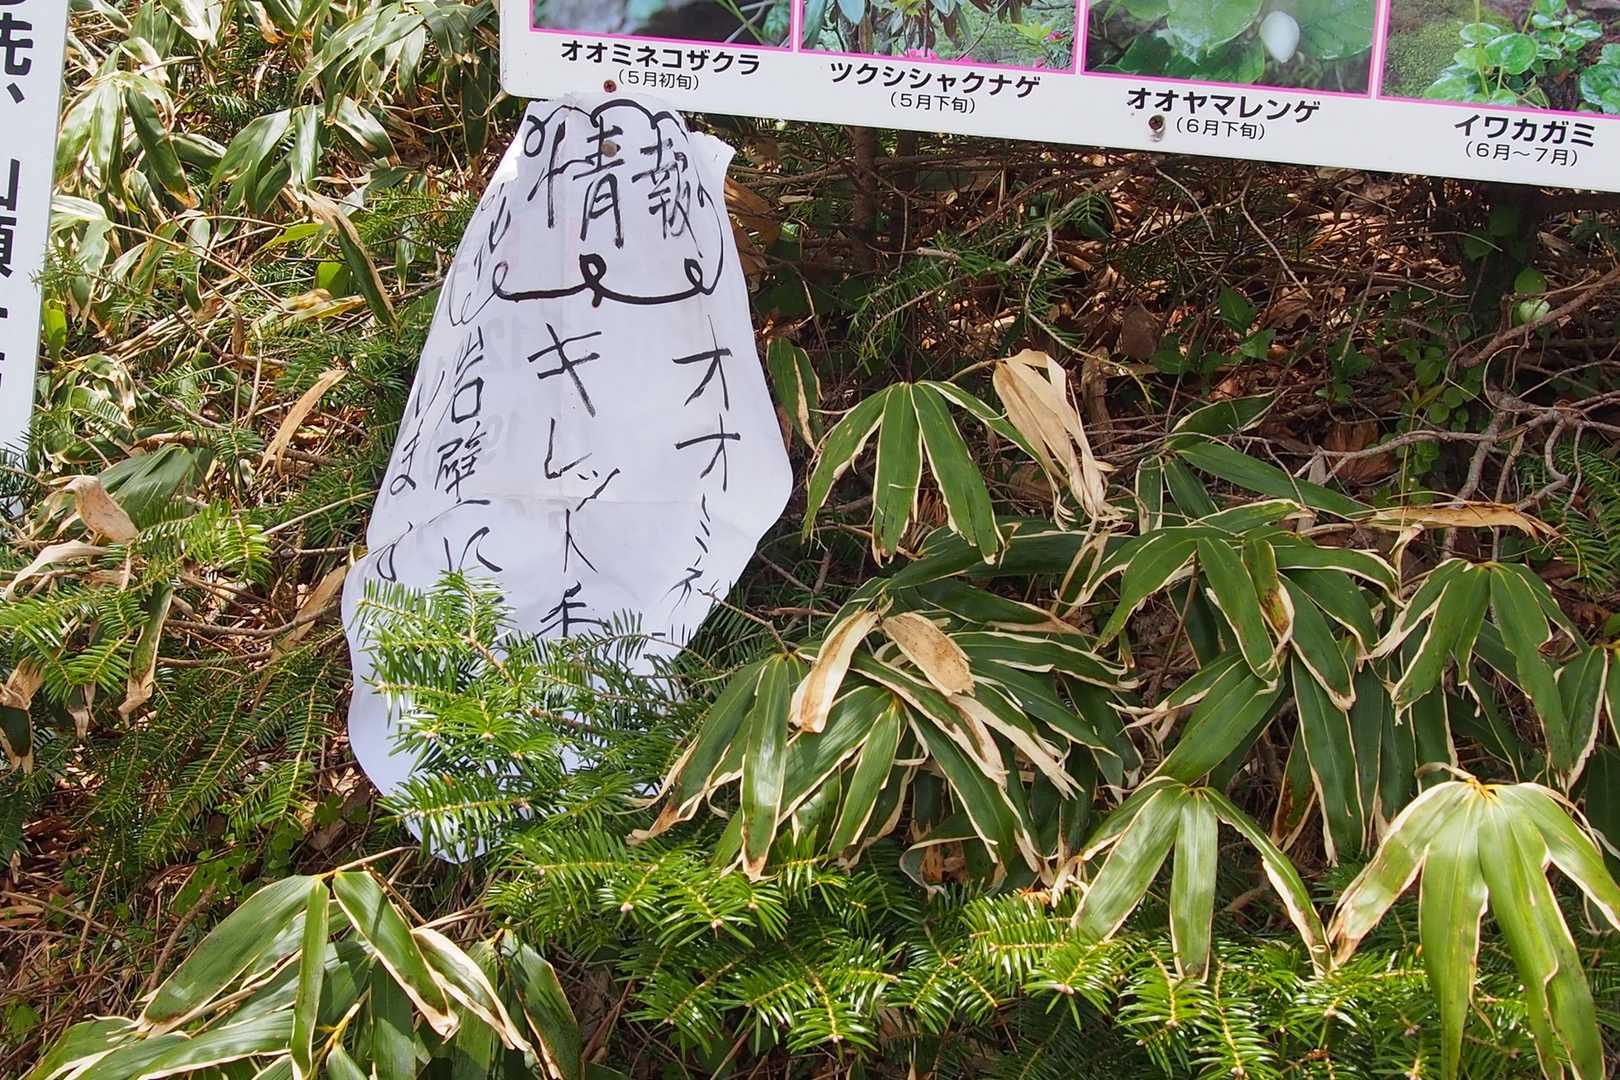 オオミネコザクラ
（５月初旬）
ツクシシャクナゲ
（５月下旬）
オオヤマレンゲ
（６月下旬）
イワカガミ
（６月～７月）
情報
オオミネ
キレット手
岩壁に
います